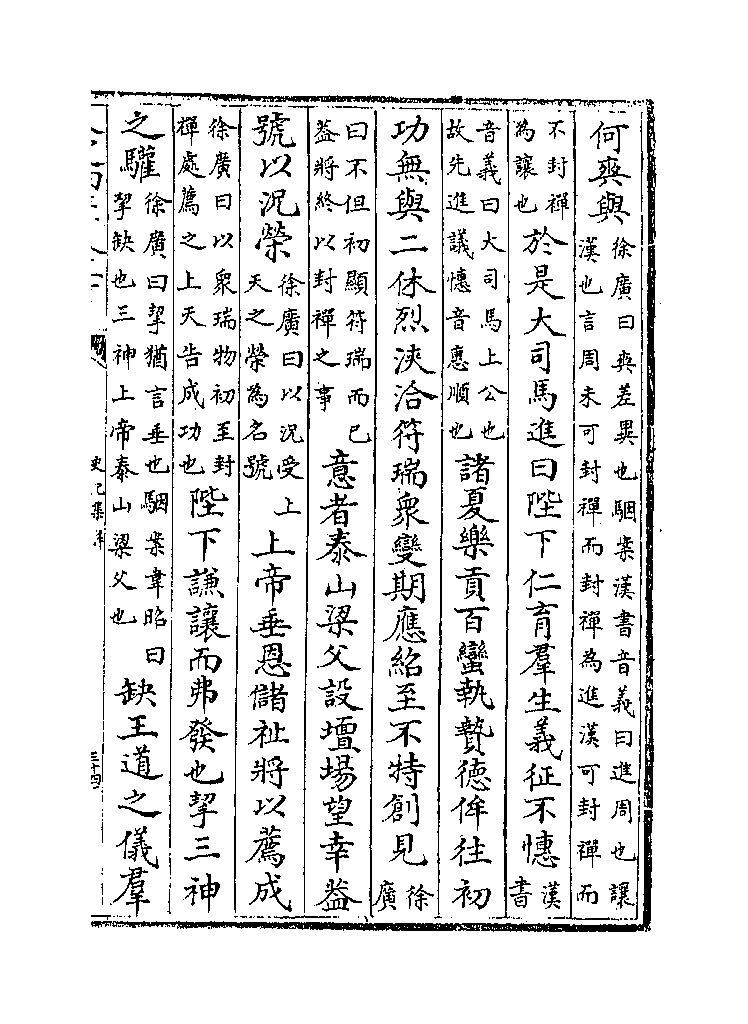 何爽與徐廣曰爽差異也駰案漢書音義曰進周也讓漢也言周未可封禪而封禪為進漢可封禪而
不封禪為讓也於是大司馬進曰陛下仁育羣生義征不憓漢書
音義曰大司馬上公也故先進議憓音惠順也諸夏樂貢百蠻執贄德侔往初
功無與二休烈浹洽符瑞衆變期應紹至不特創見徐廣
曰不但初顯符瑞而已葢將終以封禪之事意者泰山梁父設壇場望幸葢
號以況榮徐廣曰以況受上天之榮為名號上帝垂恩儲祉將以薦成
徐廣曰以衆瑞物初至封禪處薦之上天告成功也陛下謙讓而弗發也挈三神
之驩徐廣曰挈猶言垂也駰案韋昭曰挈缺也三神上帝泰山梁父也缺王道之儀羣
史記集解
三十四